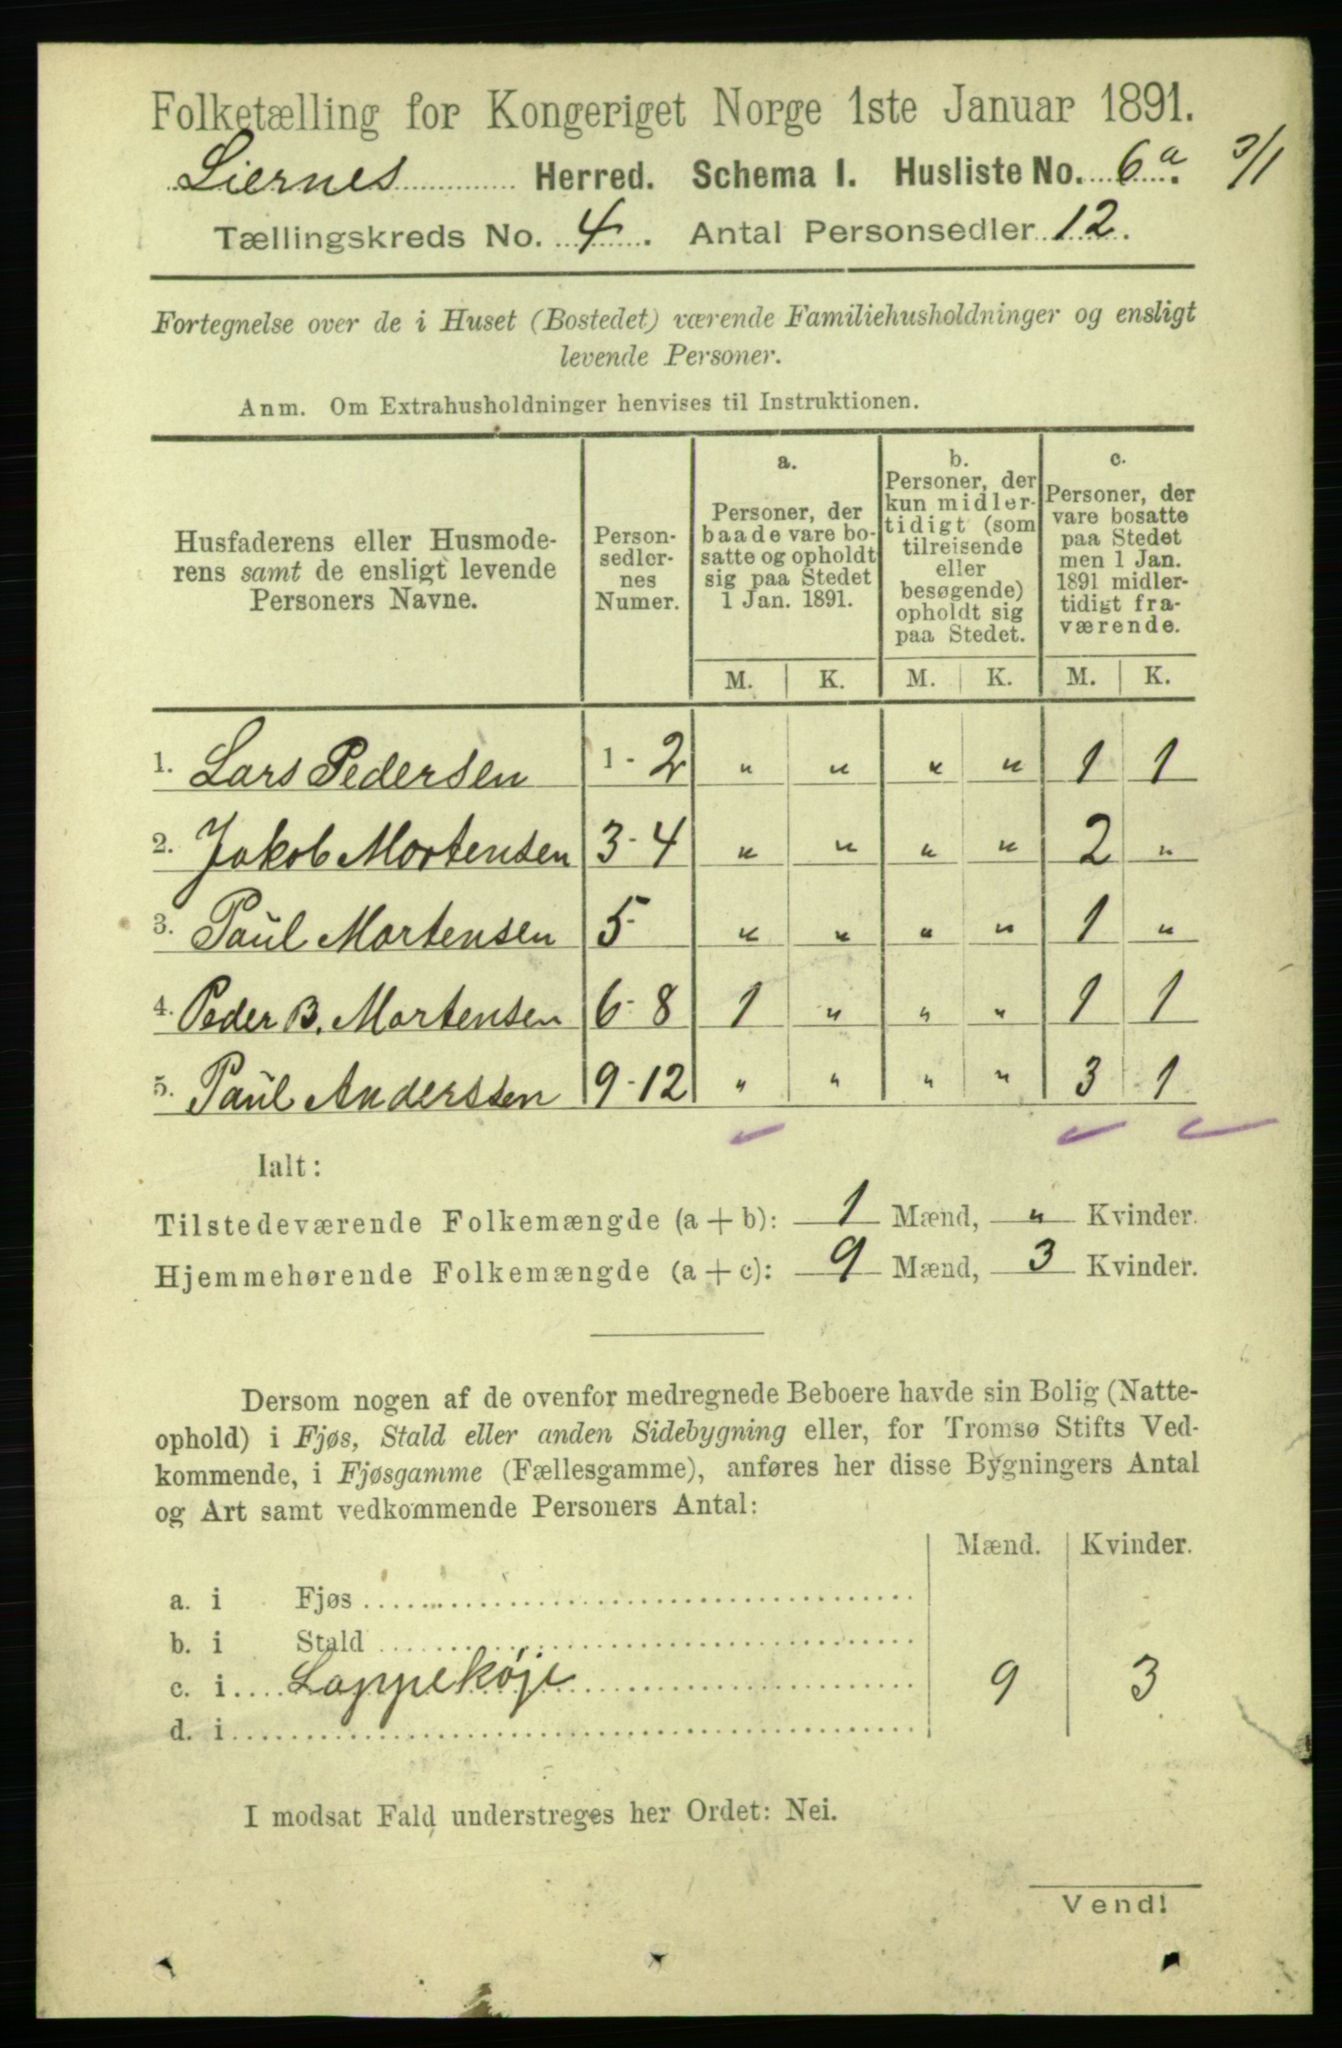 Folketælling for Kongeriget Norge 1ste Januar 1891.
Liernes Herred. Schema I. Husliste No. 6a. 3/1
Tællingskreds No. 4. Antal Personsedler 12.
Fortegnelse over de i Huset (Bostedet) værende Familiehusholdninger og ensligt
levende Personer.
Anm. Om Extrahusholdninger henvises til Instruktionen.
Husfaderens eller Husmode-
rens samt de ensligt levende
Personers Navne.
Person-
sedler-
nes
Numer.
a.
Personer, der
baade vare bo-
satte og opholdt
sig paa Stedet
1 Jan. 1891.
b.
Personer, der
kun midler-
tidigt (som
tilreisende
eller
besøgende)
opholdt sig
paa Stedet.
c.
Personer, der
vare bosatte
paa Stedet
men 1 Jan.
1891 midler-
tidigt fra-
værende.
M. K. M. K. M. K.
1. Lars Pedersen 1 - 2 " " " " 1 1
2. Jakob Mortensen 3 - 4 " " " " 2 "
3. Paul Mortensen 5 - " " " " 1 "
4. Peder B. Mortensen 6 - 8 1 " " " 1 1
5. Paul Anderssen 9 - 12 " " " " 3 1
Ialt:
Tilstedeværende Folkemængde (a + b): 1 Mænd, " Kvinder.
Hjemmehørende Folkemængde (a + c): 9 Mænd, 3 Kvinder.
Dersom nogen af de ovenfor medregnede Beboere havde sin Bolig (Natte-
ophold) i Fjøs, Stald eller anden Sidebygning eller, for Tromsø Stifts Ved-
kommende, i Fjøsgamme (Fællesgamme), anføres her disse Bygningers Antal
og Art samt vedkommende Personers Antal:
Mænd. Kvinder.
a. i Fjøs
b. i Stald
c. i Lappekøje 9 3
d. i
I modsat Fald understreges her Ordet: Nei.
Vend!